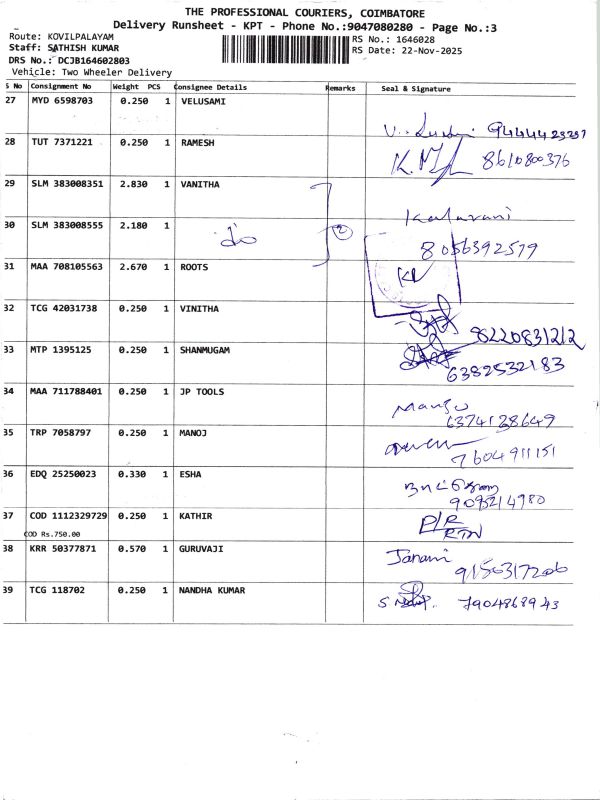 THE PROFESSIONAL COURIERS, COIMBATORE
Delivery Runsheet - KPT - Phone No.:9047080280 - Page No.:3
Route: KOVILPALAYAM
RS No.: 1646028
Staff: SATHISH KUMAR
RS Date: 22-Nov-2025
DRS No.: DCJB164602803
Vehicle: Two Wheeler Delivery
S No Consignment No Weight PCS Consignee Details Remarks Seal & Signature
27 MYD 6598703 0.250 1 VELUSAMI
28 TUT 7371221 0.250 1 RAMESH 8610800376
29 SLM 383008351 2.830 1 VANITHA
30 SLM 383008555 2.180 1 do Kalavani
8056392579
31 MAA 708105563 2.670 1 ROOTS
32 TCG 42031738 0.250 1 VINITHA 8220831212
33 MTP 1395125 0.250 1 SHANMUGAM 6382532183
34 MAA 711788401 0.250 1 JP TOOLS 6374128649
35 TRP 7058797 0.250 1 MANOJ 7604911151
36 EDQ 25250023 0.330 1 ESHA 9095214980
37 COD 1112329729 0.250 1 KATHIR D/R
RTN
COD Rs.750.00
38 KRR 50377871 0.570 1 GURUVAJI Janani 9156317206
39 TCG 118702 0.250 1 NANDHA KUMAR 7904868943